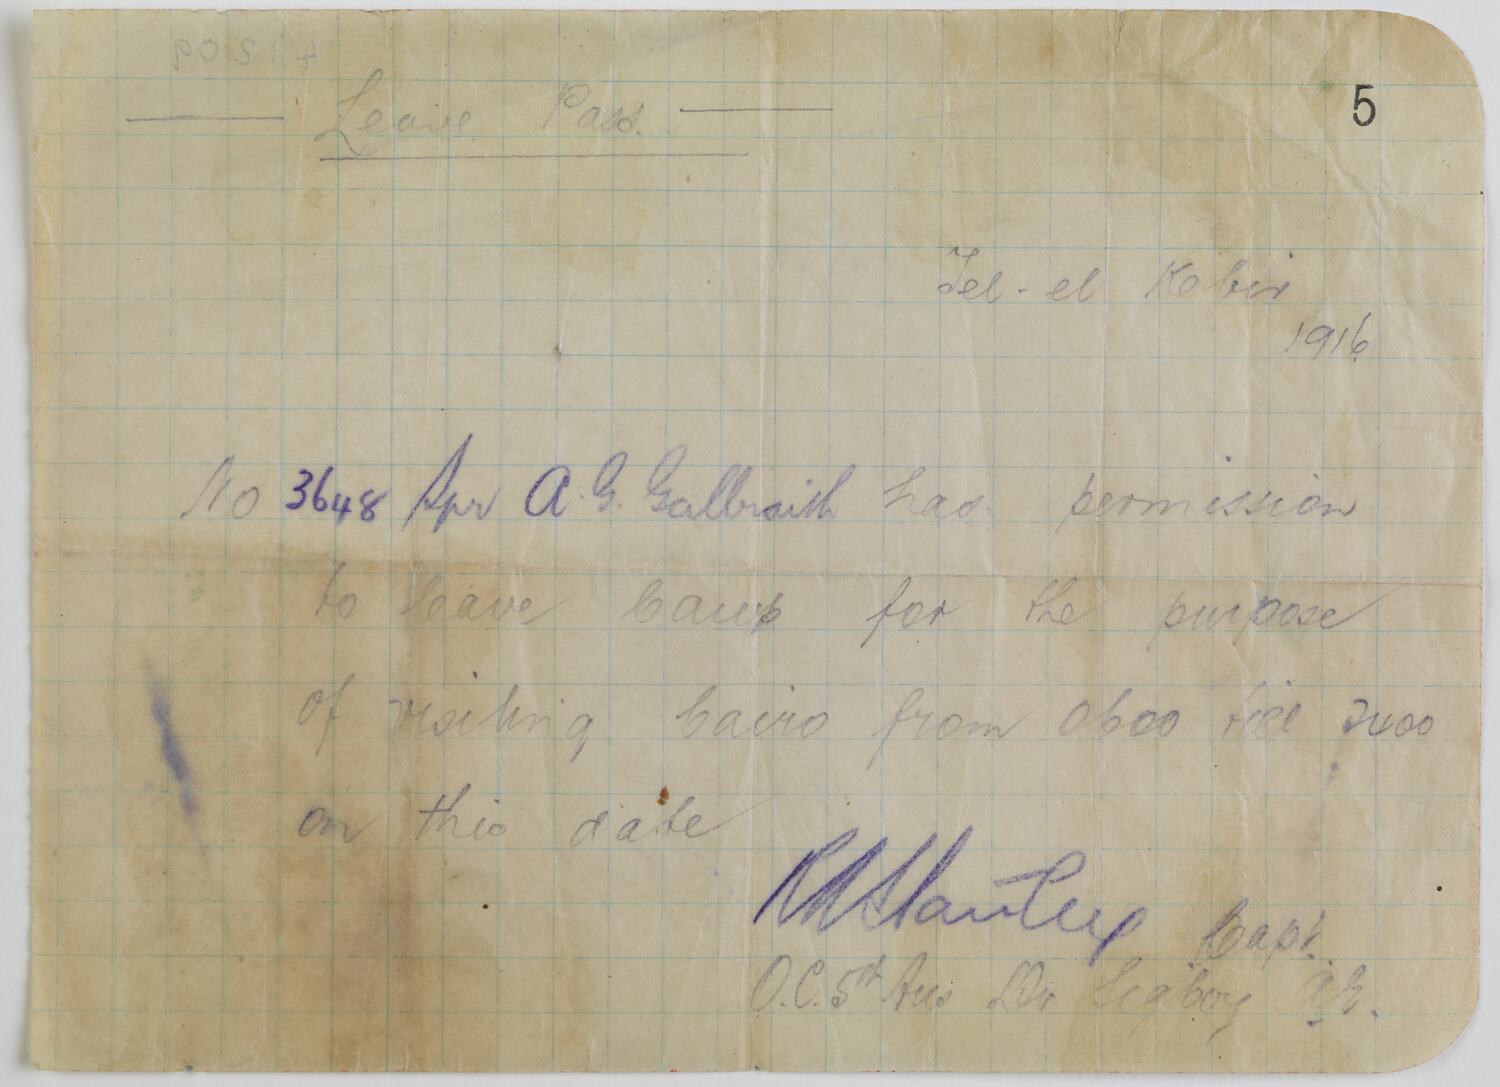 Leave Pass.
5
Tel-el Kebir
1916
No 3648 Spr A. G. Galbraith has permission
to leave Camp for the purpose
of visiting Cairo from 0600 till 2400
on this date
Capt.
O.C. 5th Aus Div Sig Coy A.E.